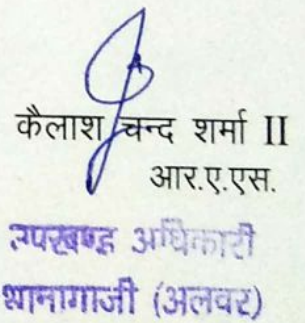 कैलाश चन्द शर्मा II
आर.ए.एस.
उपखण्ड अधिकारी
थानागाजी (अलवर)